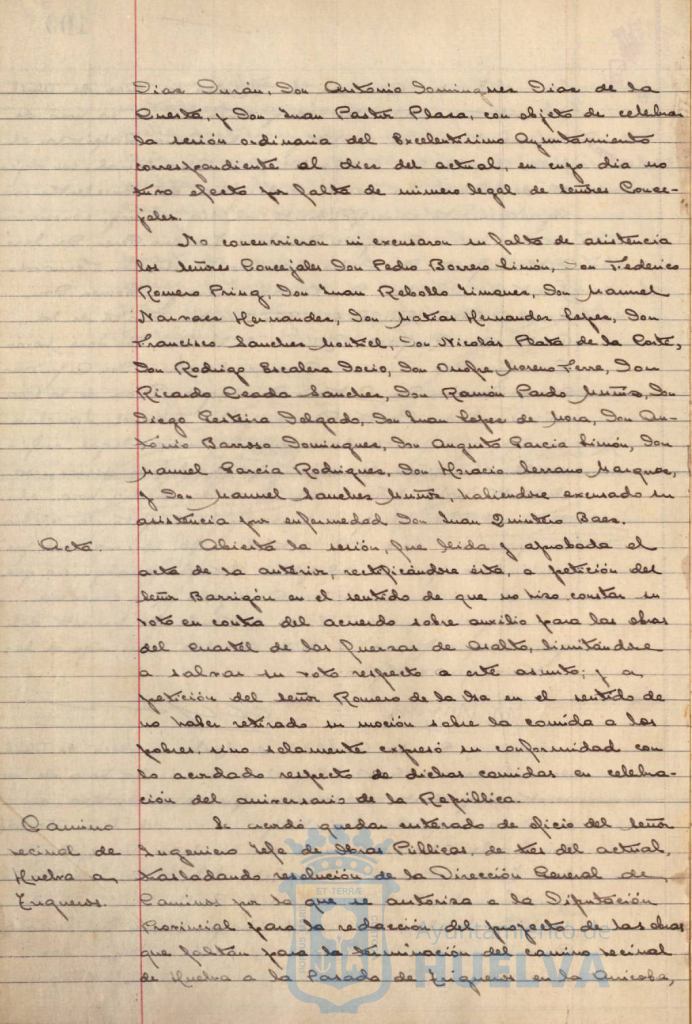 Diaz Durán, Don Antonio Dominguez Diaz de la
Cuesta, y Don Juan Pastor Plaza, con objeto de celebrar
la sesión ordinaria del Excelentisimo Ayuntamiento
correspondiente al diez del actual, en cuyo dia no
tuvo efecto por falta de número legal de señores Conce-
jales.
No concurrieron ni excusaron su falta de asistencia
los señores Concejales Don Pedro Borrero Limón, Don Federico
Romero Prinz, Don Juan Rebollo Jimenez, Don Manuel
Narvaez Hernandez, Don Matias Hernandez Lopez, Don
Francisco Sanchez Montiel, Don Nicolás Plata de la Corte,
Don Rodrigo Escalera Docio, Don Onofre Moreno Ferre, Don
Ricardo Ceada Sanchez, Don Ramón Pardo Muñiz, Don
Diego Delgado, Don Juan Lopez de Mora, Don An-
tonio Barroso Dominguez, Don Augusto Garcia Limón, Don
Manuel Garcia Rodriguez, Don Horacio Serrano Marquez,
y Don Manuel Sanchez Muñoz, habiendose excusado su
asistencia por enfermedad Don Juan Quintero Baez.
Acta.
Abierta la sesión, fue leida y aprobada el
acta de la anterior, rectificándose ésta, a petición del
señor Barrigón en el sentido de que no hizo constar su
voto en contra del acuerdo sobre auxilio para las obras
del cuartel de las fuerzas de Asalto, limitándose
a salvar su voto respecto a este asunto; y a
petición del señor Romero de la Isa en el sentido de
no haber retirado su moción sobre la comida a los
pobres, sino solamente expresó su conformidad con
lo acordado respecto de dichas comidas en celebra-
ción del aniversario de la República.
Camino
vecinal de
Huelva a
Trigueros.
Se acordó quedar enterado de oficio del señor
Ingeniero Jefe de Obras Públicas, de tres del actual,
trasladando resolución de la Dirección General de
Caminos por la que se autoriza a la Diputación
Provincial para la redacción del proyecto de las obras
que faltan para la terminación del camino vecinal
de Huelva a la Pasada de Trigueros en la Anicoba,
Ayuntamiento de
HUELVA